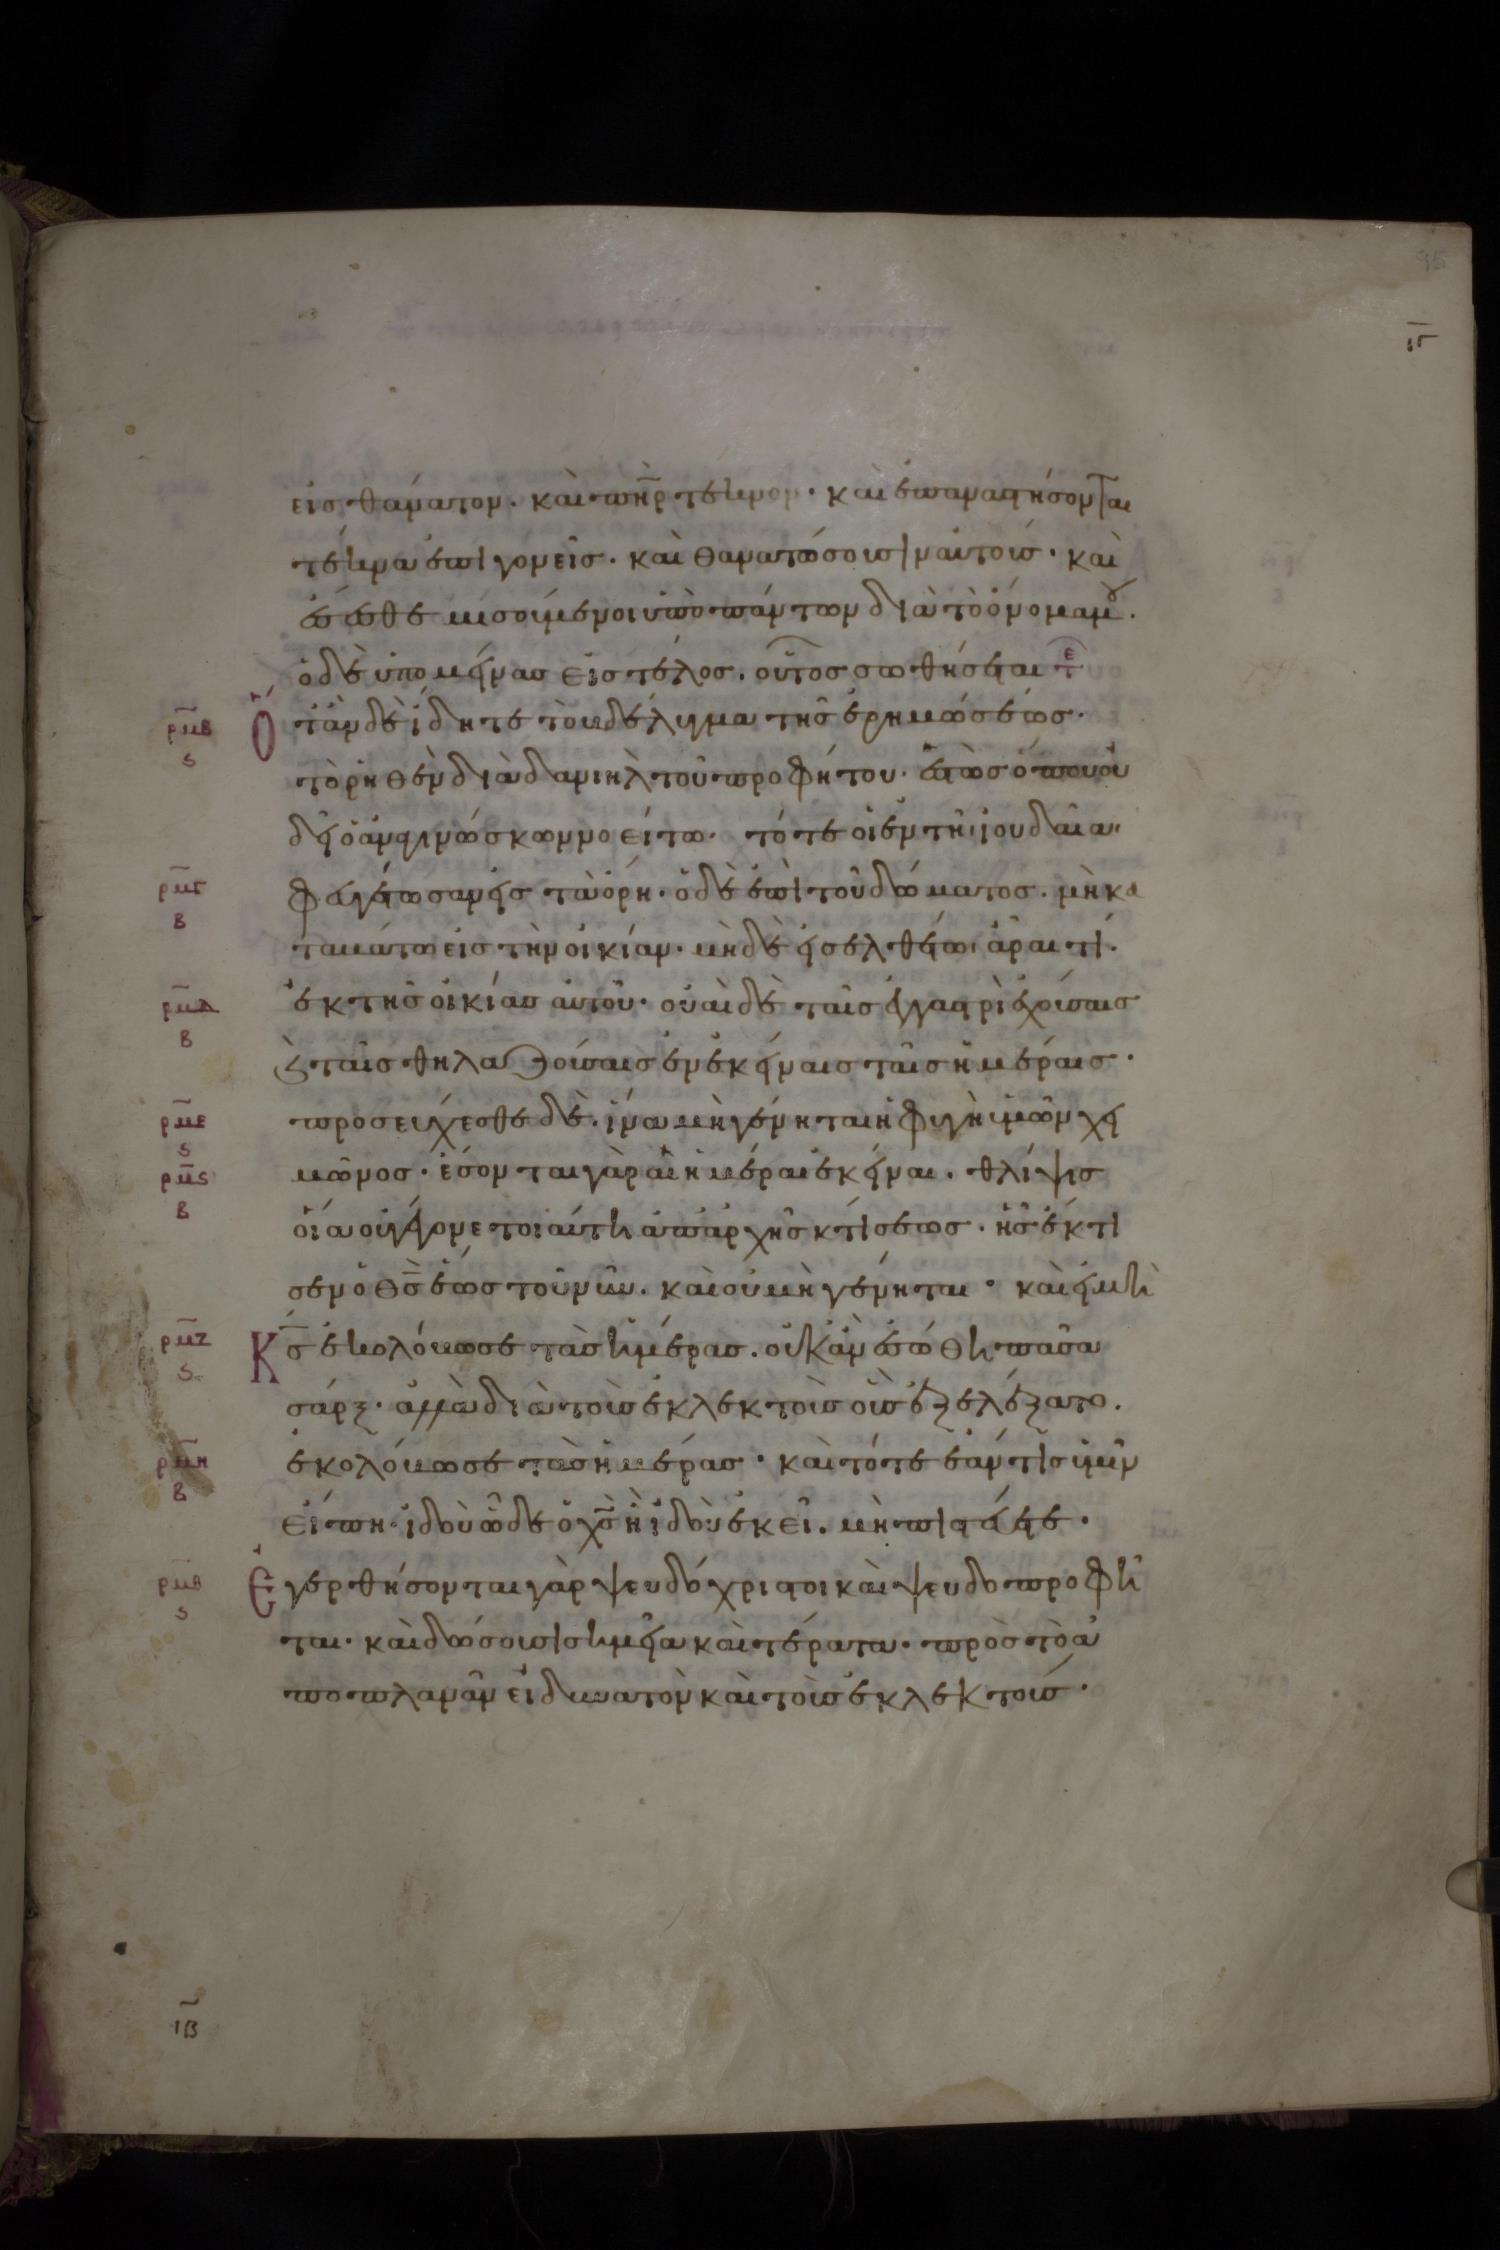 95
ιγ
εἰς θάνατον. καὶ πη̅ρ τέκνον. καὶ ἐπαναστήσονται
τέκνα ἐπὶ γονεῖς. καὶ θανατώσουσιν αὐτούς. καὶ
ἔσεσθε μισούμενοι ὑπὸ πάντων διὰ τὸ ὄνομά μου.
ὁ δὲ ὑπομείνας εἰς τέλος. οὗτος σωθήσεται
ρμβ ς Ὅταν δὲ ἴδητε τὸ βδέλυγμα τῆς ἐρημώσεως.
τὸ ῥηθὲν διὰ δανιὴλ τοῦ προφήτου. ἑστὼς ὅπου οὐ
δεῖ ὁ ἀναγινώσκων νοείτω. τότε οἱ ἐν τῆ ἰουδαία
ρμγ β φευγέτωσαν εἰς τὰ ὄρη. ὁ δὲ ἐπὶ τοῦ δώματος. μὴ κα
ταβάτω εἰς τὴν οἰκίαν. μὴ δὲ εἰσελθέτω ἆραι τί.
ρμδ β ἐκ τῆς οἰκίας αὐτοῦ. οὐαὶ δὲ ταῖς ἐν γαστρὶ ἐχούσαις
κ ταῖς θηλαζούσαις ἐν ἐκείναις ταῖς ἡμέραις.
ρμε ς προσεύχεσθε δὲ. ἵνα μὴ γένηται ἡ φυγὴ ὑμῶν χει
ρμς β μῶνος. ἔσονται γὰρ αἱ ἡμέραι ἐκείναι. θλίψις
οἵα οὐ γέγονε τοιαύτη ἀπαρχῆς κτίσεως. ἧς ἔκτι
σεν ὁ θς ἕως τοῦ νῦν. καὶ οὐ μὴ γένηται. καὶ εἰ μὴ
ρμζ ς Κς ἐκολόβωσε τὰς ἡμέρας. οὐκ ἂν ἐσώθη πᾶσα
σάρξ. ἀλλὰ διὰ τοὺς ἐκλεκτοὺς οὓς ἐξελέξατο.
ρμη β ἐκολόβωσε τὰς ἡμέρας. καὶ τότε ἐάν τις ὑμῖν
εἴπη. ἰδοὺ ὧδε ὁ χς ἢ ἰδοὺ ἐκεῖ. μὴ πιστεύετε.
ρμθ ς Ἐγερθήσονται γὰρ ψευδόχριστοι καὶ ψευδοπροφῆ
ται. καὶ δώσουσι σημεῖα καὶ τέρατα. πρὸς τὸ ἀ
ποπλανᾶν εἰ δυνατὸν καὶ τοὺς ἐκλεκτούς.
ιβ